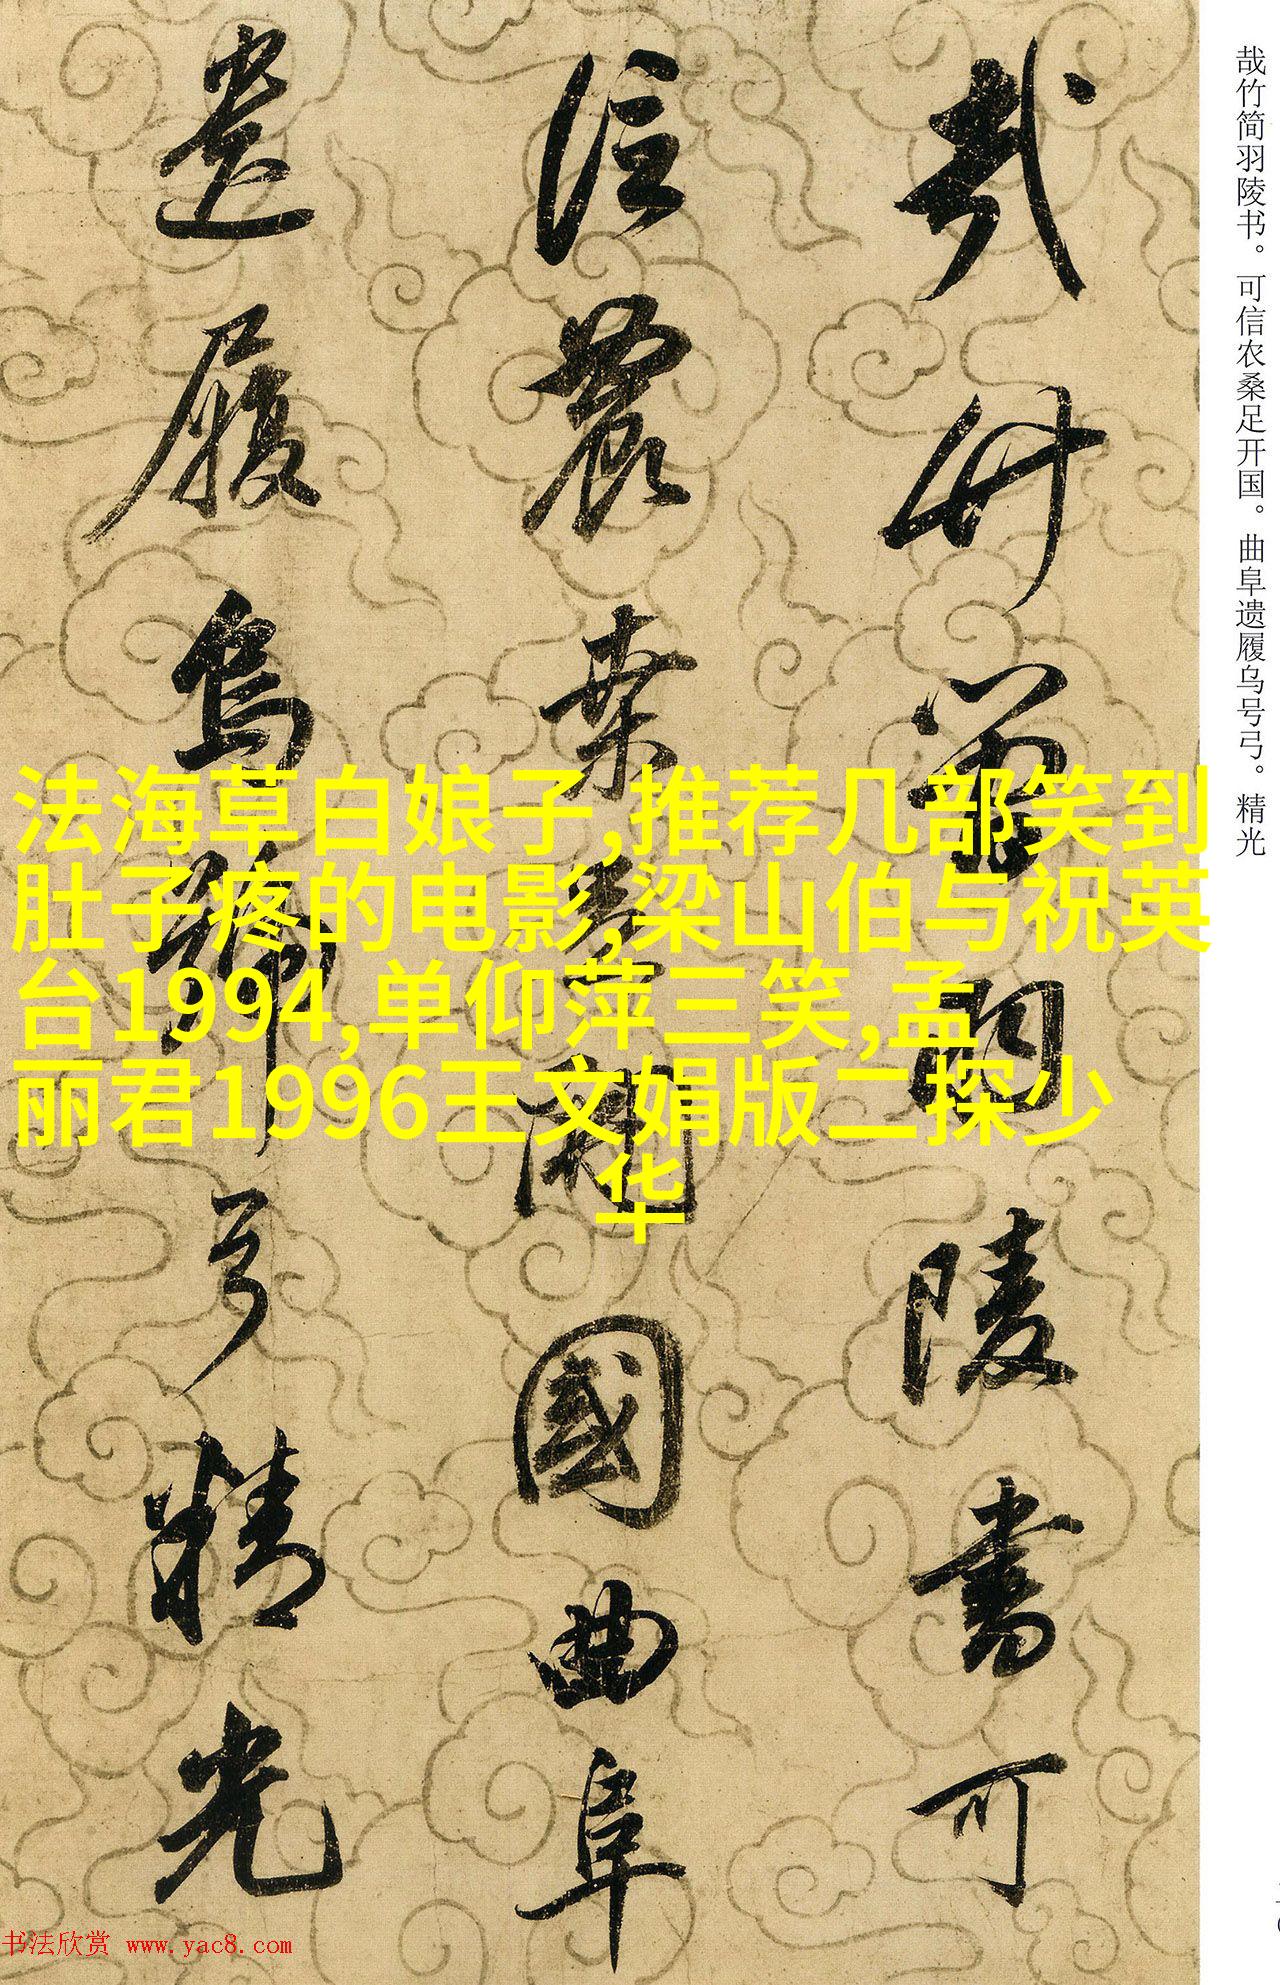 哉竹简羽陵书。可信农桑足开国。曲阜遗履乌号弓。精光
哉竹簡羽陵書可
信農桒足開國曲阜
遺履烏號弓精光
法海草白娘子,推荐几部笑到
肚子疼的电影,梁山伯与祝英
台1994,单仰萍三笑,孟
丽君1996王文娟版二探少
华
书法欣赏 www.yac8.com